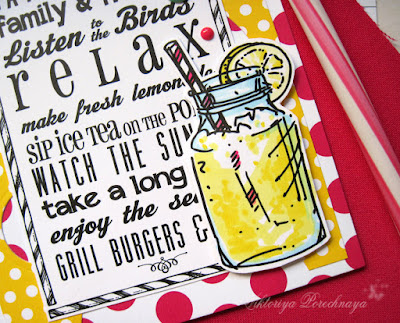 family &
Listen to the Birds
relax
make fresh lemonade
sip ice tea on the po
WATCH THE SUN
take a long
enjoy the se
GRILL BURGERS &
Viktoriya Porechnaya